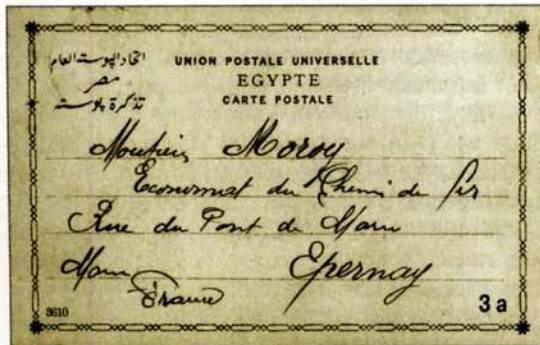 اتحاد البوسته العام
مصر
تذكرة بوسته
UNION POSTALE UNIVERSELLE
EGYPTE
CARTE POSTALE
Monsieur Moroy
Economat du Chemin de fer
Rue du Pont de Marne
Marne Epernay
France
3610
3a